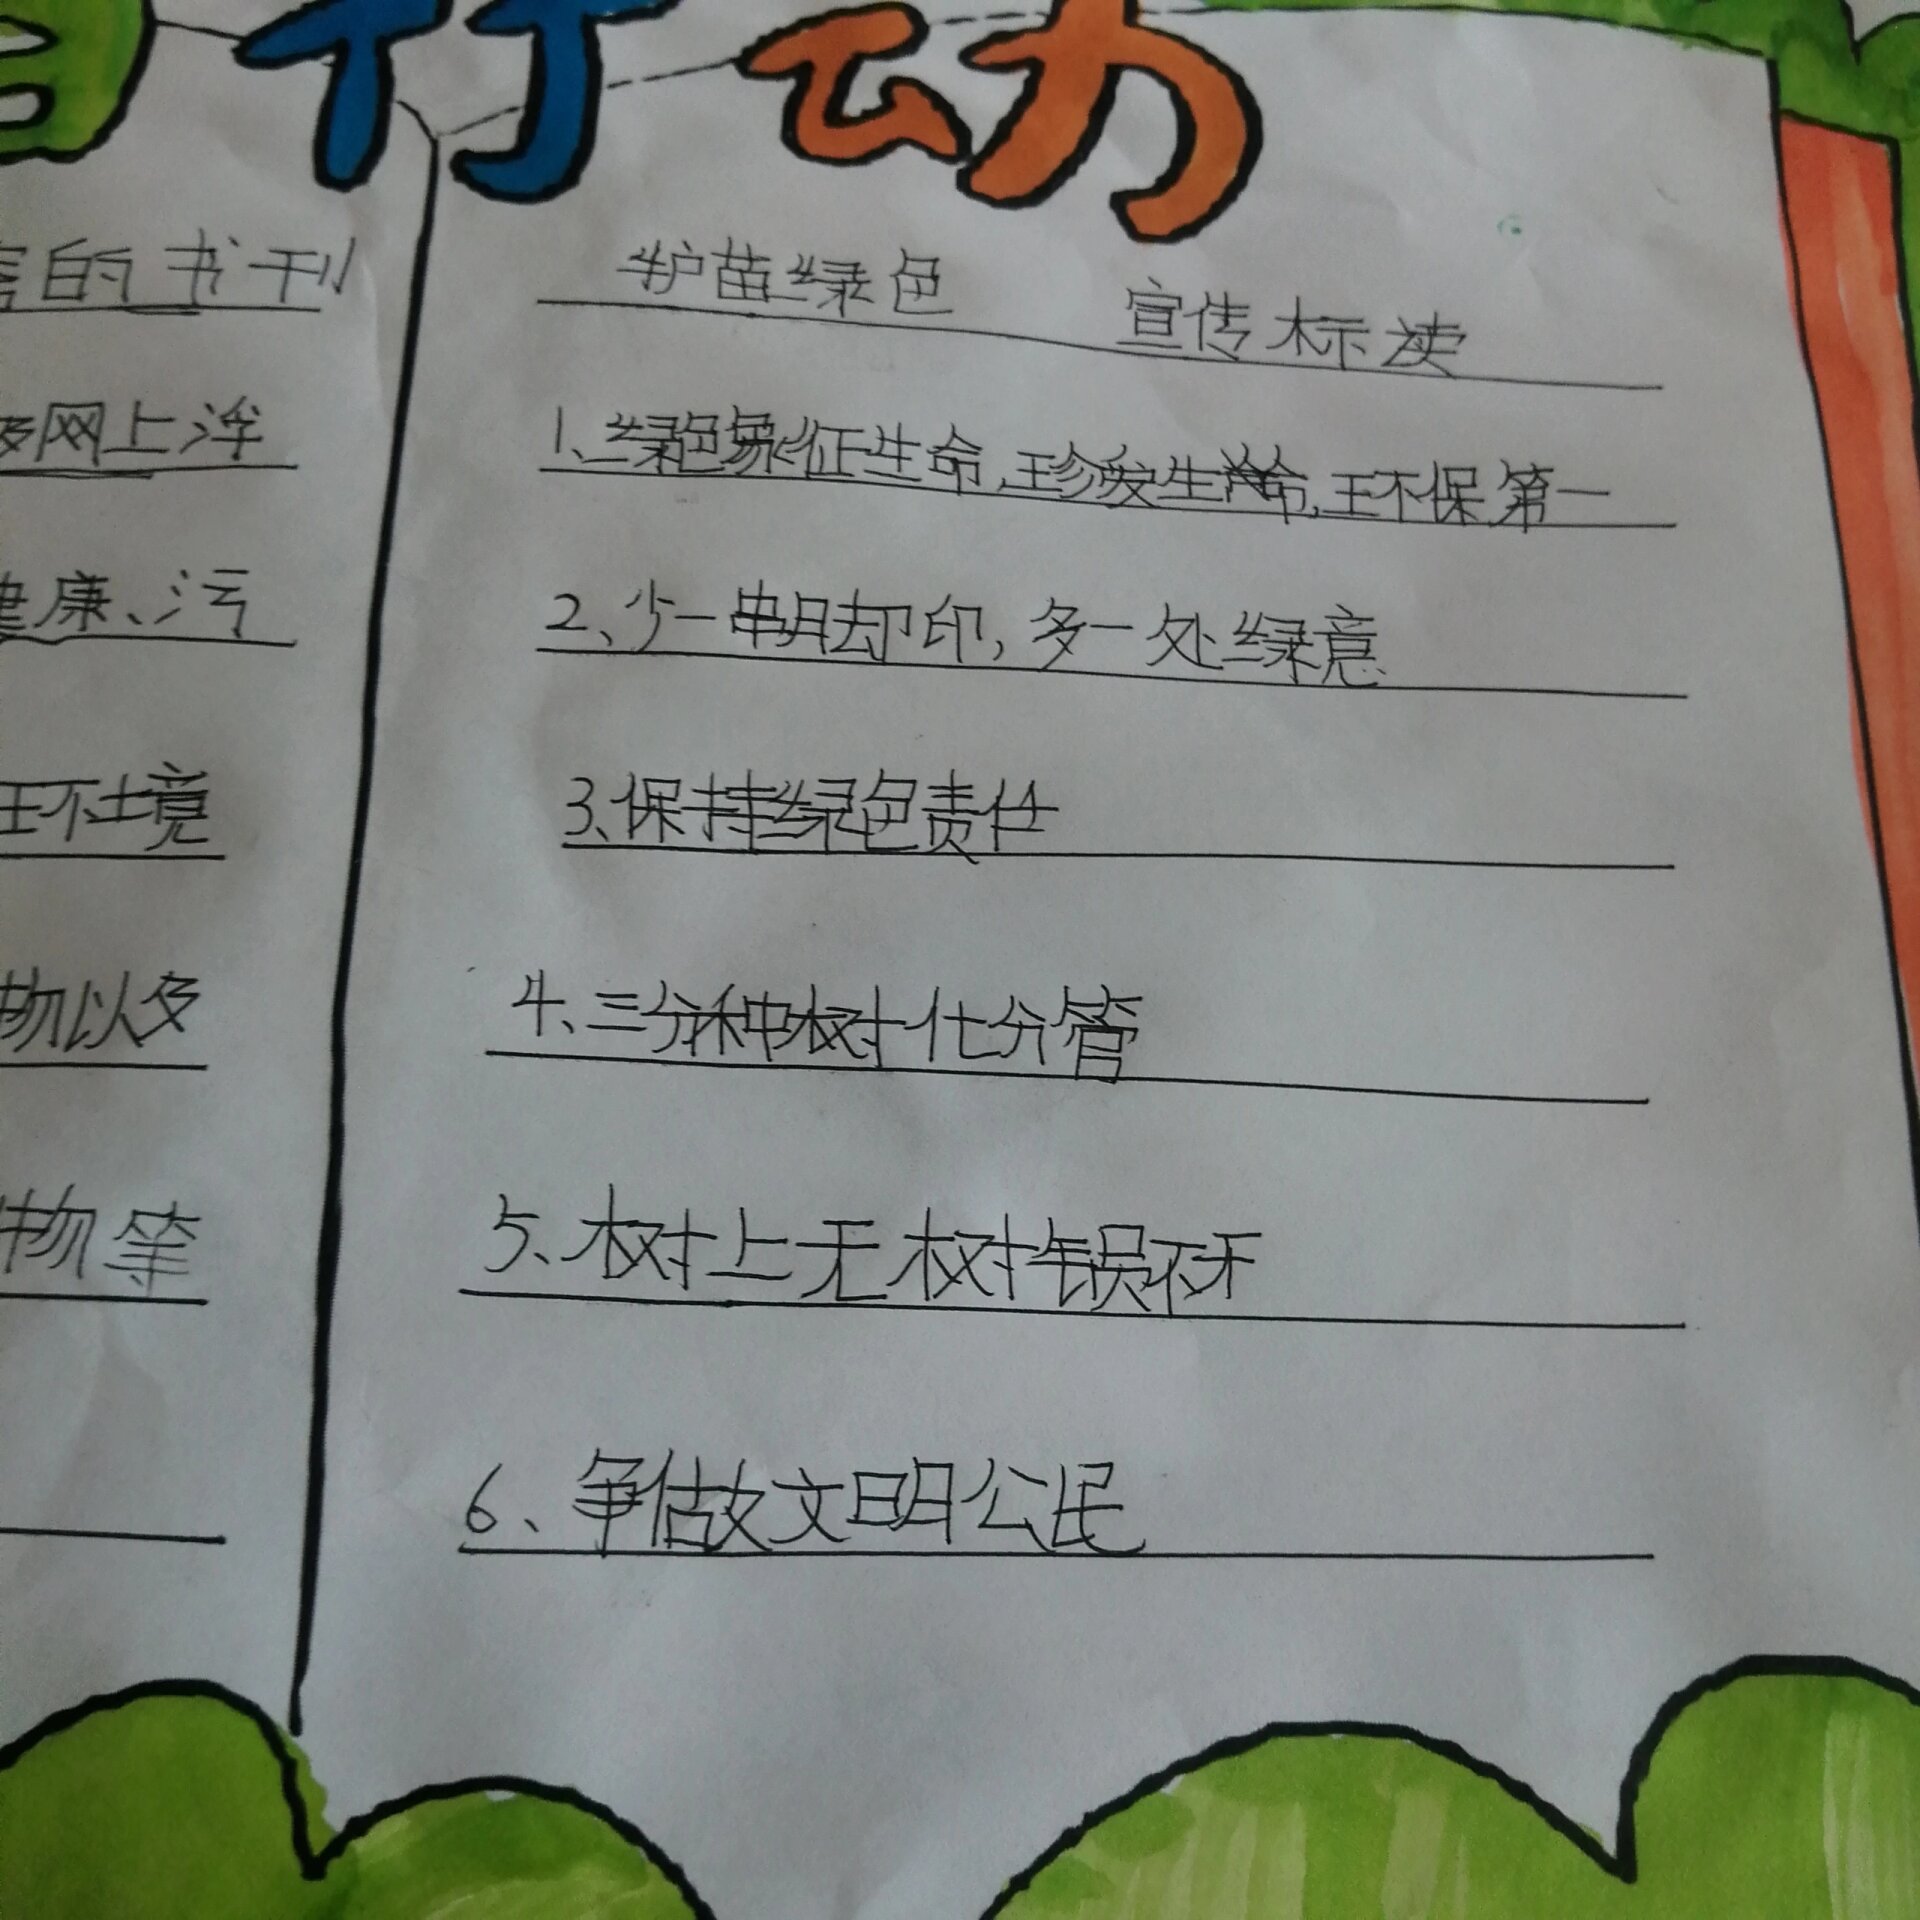 苗行动
害的书刊
及网上淫
健康、污
环境
物以及
物等
护苗绿色 宣传标读
1、绿色象征生命,珍爱生命,环保第一
2、少一串脚印,多一处绿意
3、保持绿色责任
4、三分种树七分管
5、树上无树
6、争做文明公民